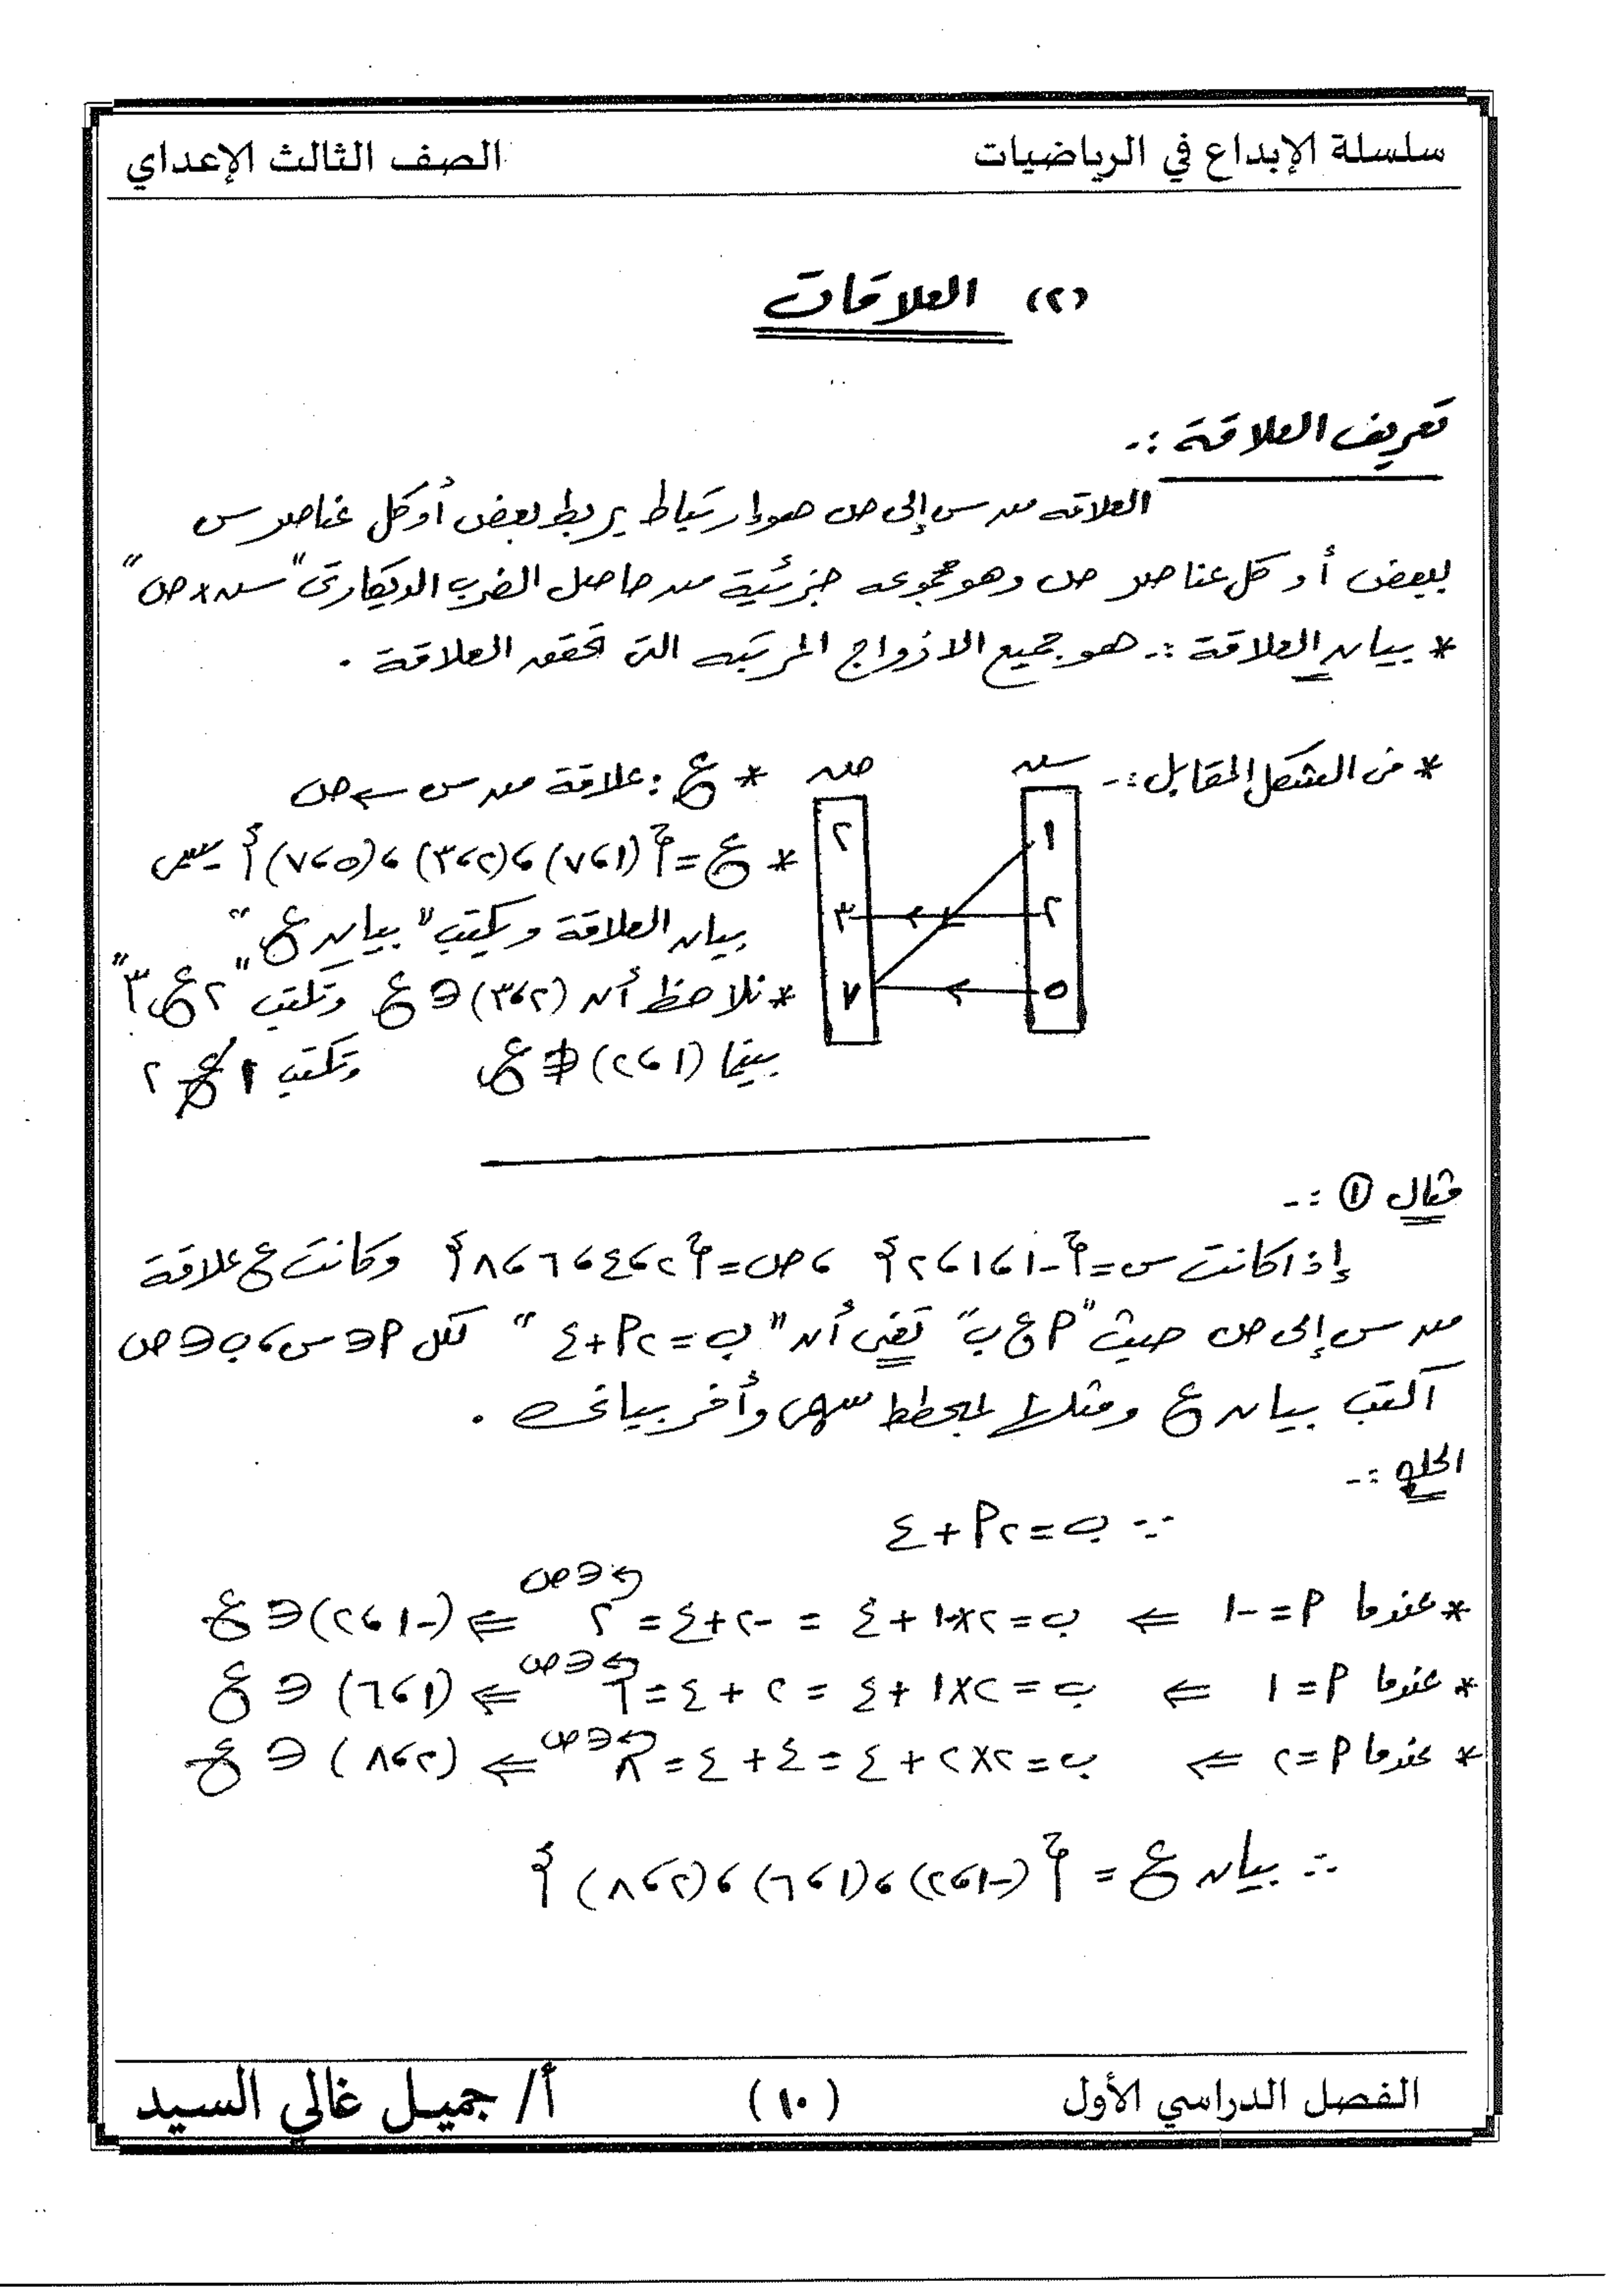 سلسلة الإبداع في الرياضيات
الصف الثالث الإعداي
(٢) العلاقات
تعريف العلاقة :-
العلاقه من س إلى ص هو إرتباط يربط بعض أو كل عناصر س
ببعض أو كل عناصر ص وهو مجموعه جزئية من حاصل الضرب الديكارتى "س × ص"
* بيان العلاقة :- هو جميع الازواج المرتبه التى تحقق العلاقة .
* من الشكل المقابل :-
س ص
١ ٢
٢ ٣
٥ ٧
* ع : علاقة من س ← ص
* ع = {(١،٧)،(٢،٣)،(٥،٧)} يسمى
بيان العلاقة ويكتب "بيان ع"
* نلاحظ أن (٢،٣) ∈ ع وتكتب "٢ ع ٣"
بينما (١،٢) ∉ ع وتكتب ١ ع̸ ٢
مثال ① :-
إذا كانت س = {-١،١،٢} ، ص = {٢،٤،٦،٨} وكانت ع علاقة
من س إلى ص حيث "أ ع ب" تعنى أن "ب = ٢أ + ٤" لكل أ ∈ س ، ب ∈ ص
اكتب بيان ع ومثلها بمخطط سهمى وأخر بيانى .
الحل :-
∵ ب = ٢أ + ٤
* عندما أ = -١ ⇐ ب = ٢×-١ + ٤ = -٢ + ٤ = ٢ ∈ ص ⇐ (-١،٢) ∈ ع
* عندما أ = ١ ⇐ ب = ٢×١ + ٤ = ٢ + ٤ = ٦ ∈ ص ⇐ (١،٦) ∈ ع
* عندما أ = ٢ ⇐ ب = ٢×٢ + ٤ = ٤ + ٤ = ٨ ∈ ص ⇐ (٢،٨) ∈ ع
∴ بيان ع = {(-١،٢)،(١،٦)،(٢،٨)}
الفصل الدراسي الأول
(١٠)
أ/ جميل غالي السيد